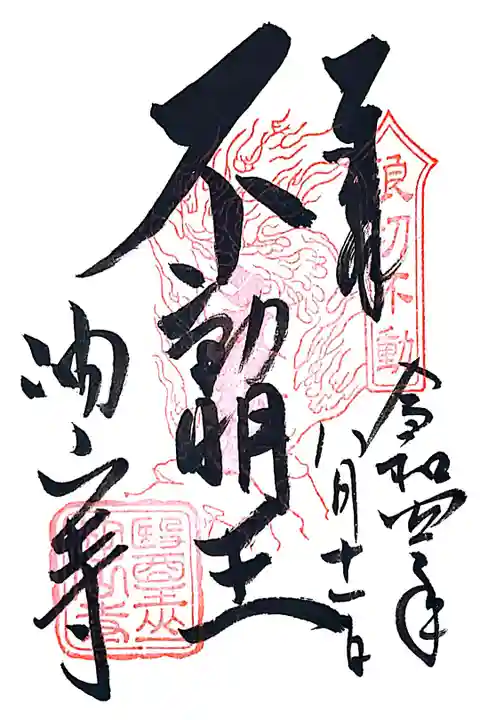 奉拝
浪切不動
令和四年
八月十一日
不動明王
油山寺